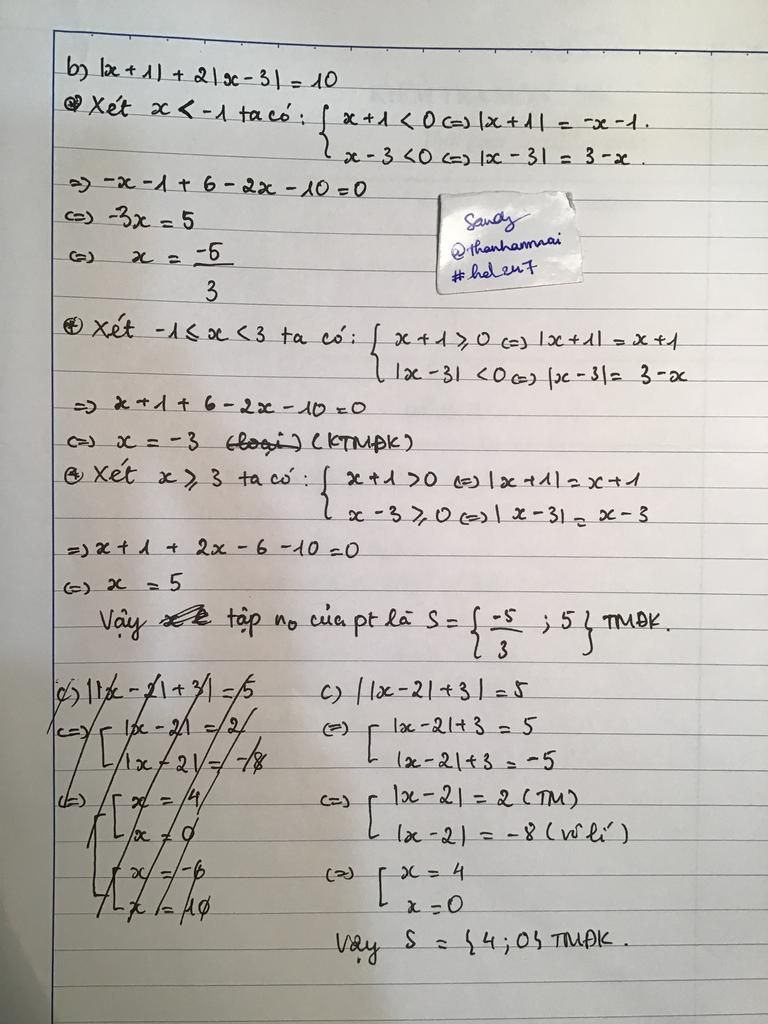 b) |x + 1| + 2|x - 3| = 10
⊕ Xét x < -1 ta có: { x + 1 < 0 <=> |x + 1| = -x - 1.
x - 3 < 0 <=> |x - 3| = 3 - x.
=> -x - 1 + 6 - 2x - 10 = 0
<=> -3x = 5
<=> x = -5/3
Sandy
@thanhamnai
#hdeu7
⊕ Xét -1 ≤ x < 3 ta có: { x + 1 ≥ 0 <=> |x + 1| = x + 1
|x - 3| < 0 <=> |x - 3| = 3 - x
=> x + 1 + 6 - 2x - 10 = 0
<=> x = -3 (loại) (KTMĐK)
⊕ Xét x ≥ 3 ta có: { x + 1 > 0 <=> |x + 1| = x + 1
x - 3 ≥ 0 <=> |x - 3| = x - 3
=> x + 1 + 2x - 6 - 10 = 0
<=> x = 5
Vậy tập no của pt là S = { -5/3 ; 5 } TMĐK.
c) ||x - 2| + 3| = 5
<=> [ |x - 2| = 2
|x - 2| = -8
<=> [ x = 4
x = 0
[ x = -6
x = 10
c) ||x - 2| + 3| = 5
<=> [ |x - 2| + 3 = 5
|x - 2| + 3 = -5
<=> [ |x - 2| = 2 (TM)
|x - 2| = -8 (vô lí)
<=> [ x = 4
x = 0
Vậy S = {4; 0} TMĐK.